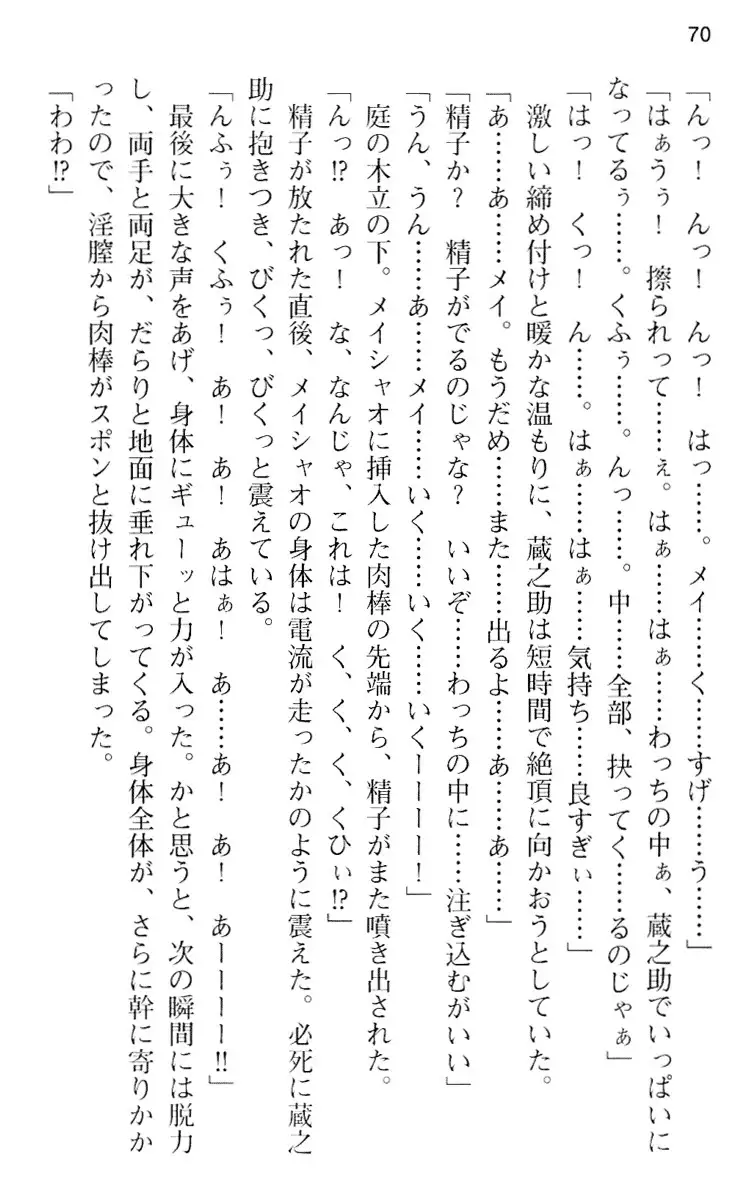 70
「んっ！　んっ！　んっ！　はっ……。メイ……く……すげ……う……」
「はぁうぅ！　擦られって……ぇ。はぁ……はぁ……わっちの中ぁ、蔵之助でいっぱいに
なってるぅ……。くふぅ……。んっ……。中……全部、抉ってく……るのじゃぁ」
「はっ！　くっ！　ん……。はぁ……はぁ……気持ち……良すぎぃ……」
　激しい締め付けと暖かな温もりに、蔵之助は短時間で絶頂に向かおうとしていた。
「あ……あ……メイ。もうだめ……また……出るよ……あ……あ……」
「精子か？　精子がでるのじゃな？　いいぞ……わっちの中に……注ぎ込むがいい」
「うん、うん……あ……メイ……いく……いく……いくーーーー！」
　庭の木立の下。メイシャオに挿入した肉棒の先端から、精子がまた噴き出された。
「んっ⁉　あっ！　な、なんじゃ、これは！　く、く、く、くひぃ⁉」
　精子が放たれた直後、メイシャオの身体は電流が走ったかのように震えた。必死に蔵之
助に抱きつき、びくっ、びくっと震えている。
「んふぅ！　くふぅ！　あ！　あ！　あはぁ！　あ……あ！　あ！　あーーーー‼」
　最後に大きな声をあげ、身体にギューッと力が入った。かと思うと、次の瞬間には脱力
し、両手と両足が、だらりと地面に垂れ下がってくる。身体全体が、さらに幹に寄りかか
ったので、淫膣から肉棒がスポンと抜け出してしまった。
「わわ⁉」